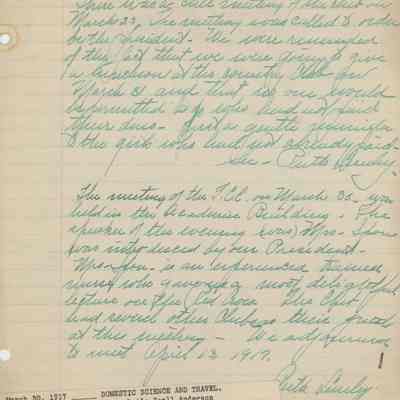 There was a call meeting of the club on
March 23, The meeting was called to order
by the president. We were reminded
of the fact that we were going to give
a luncheon at the country club on
March 31 and that no one would
be permitted to go who had not paid
their dues. Just a gentle reminder
to the girls who had not already paid.
Sec- Ruth
The meeting of the T.C.C. on March 30. was
held in the Academic Building. The
speaker of the evening was Mrs.
was introduced by our President.
Mrs. is an experienced trained
nurse who gave us a most delightful
lecture on The Red Cross. The Club
had several other Clubs as their guests
at this meeting - We adjourned
to meet April 13 1917.
Ruth
March 30, 1917 DOMESTIC SCIENCE AND TRAVEL.
Anderson